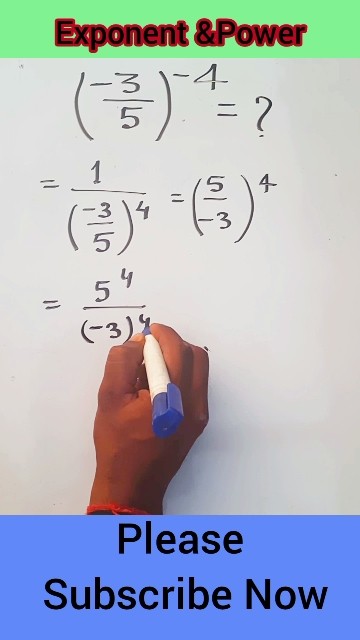 Exponent &Power
(-3/5)^-4 = ?
= 1/(-3/5)^4 = (5/-3)^4
= 5^4/(-3)^4
Please
Subscribe Now